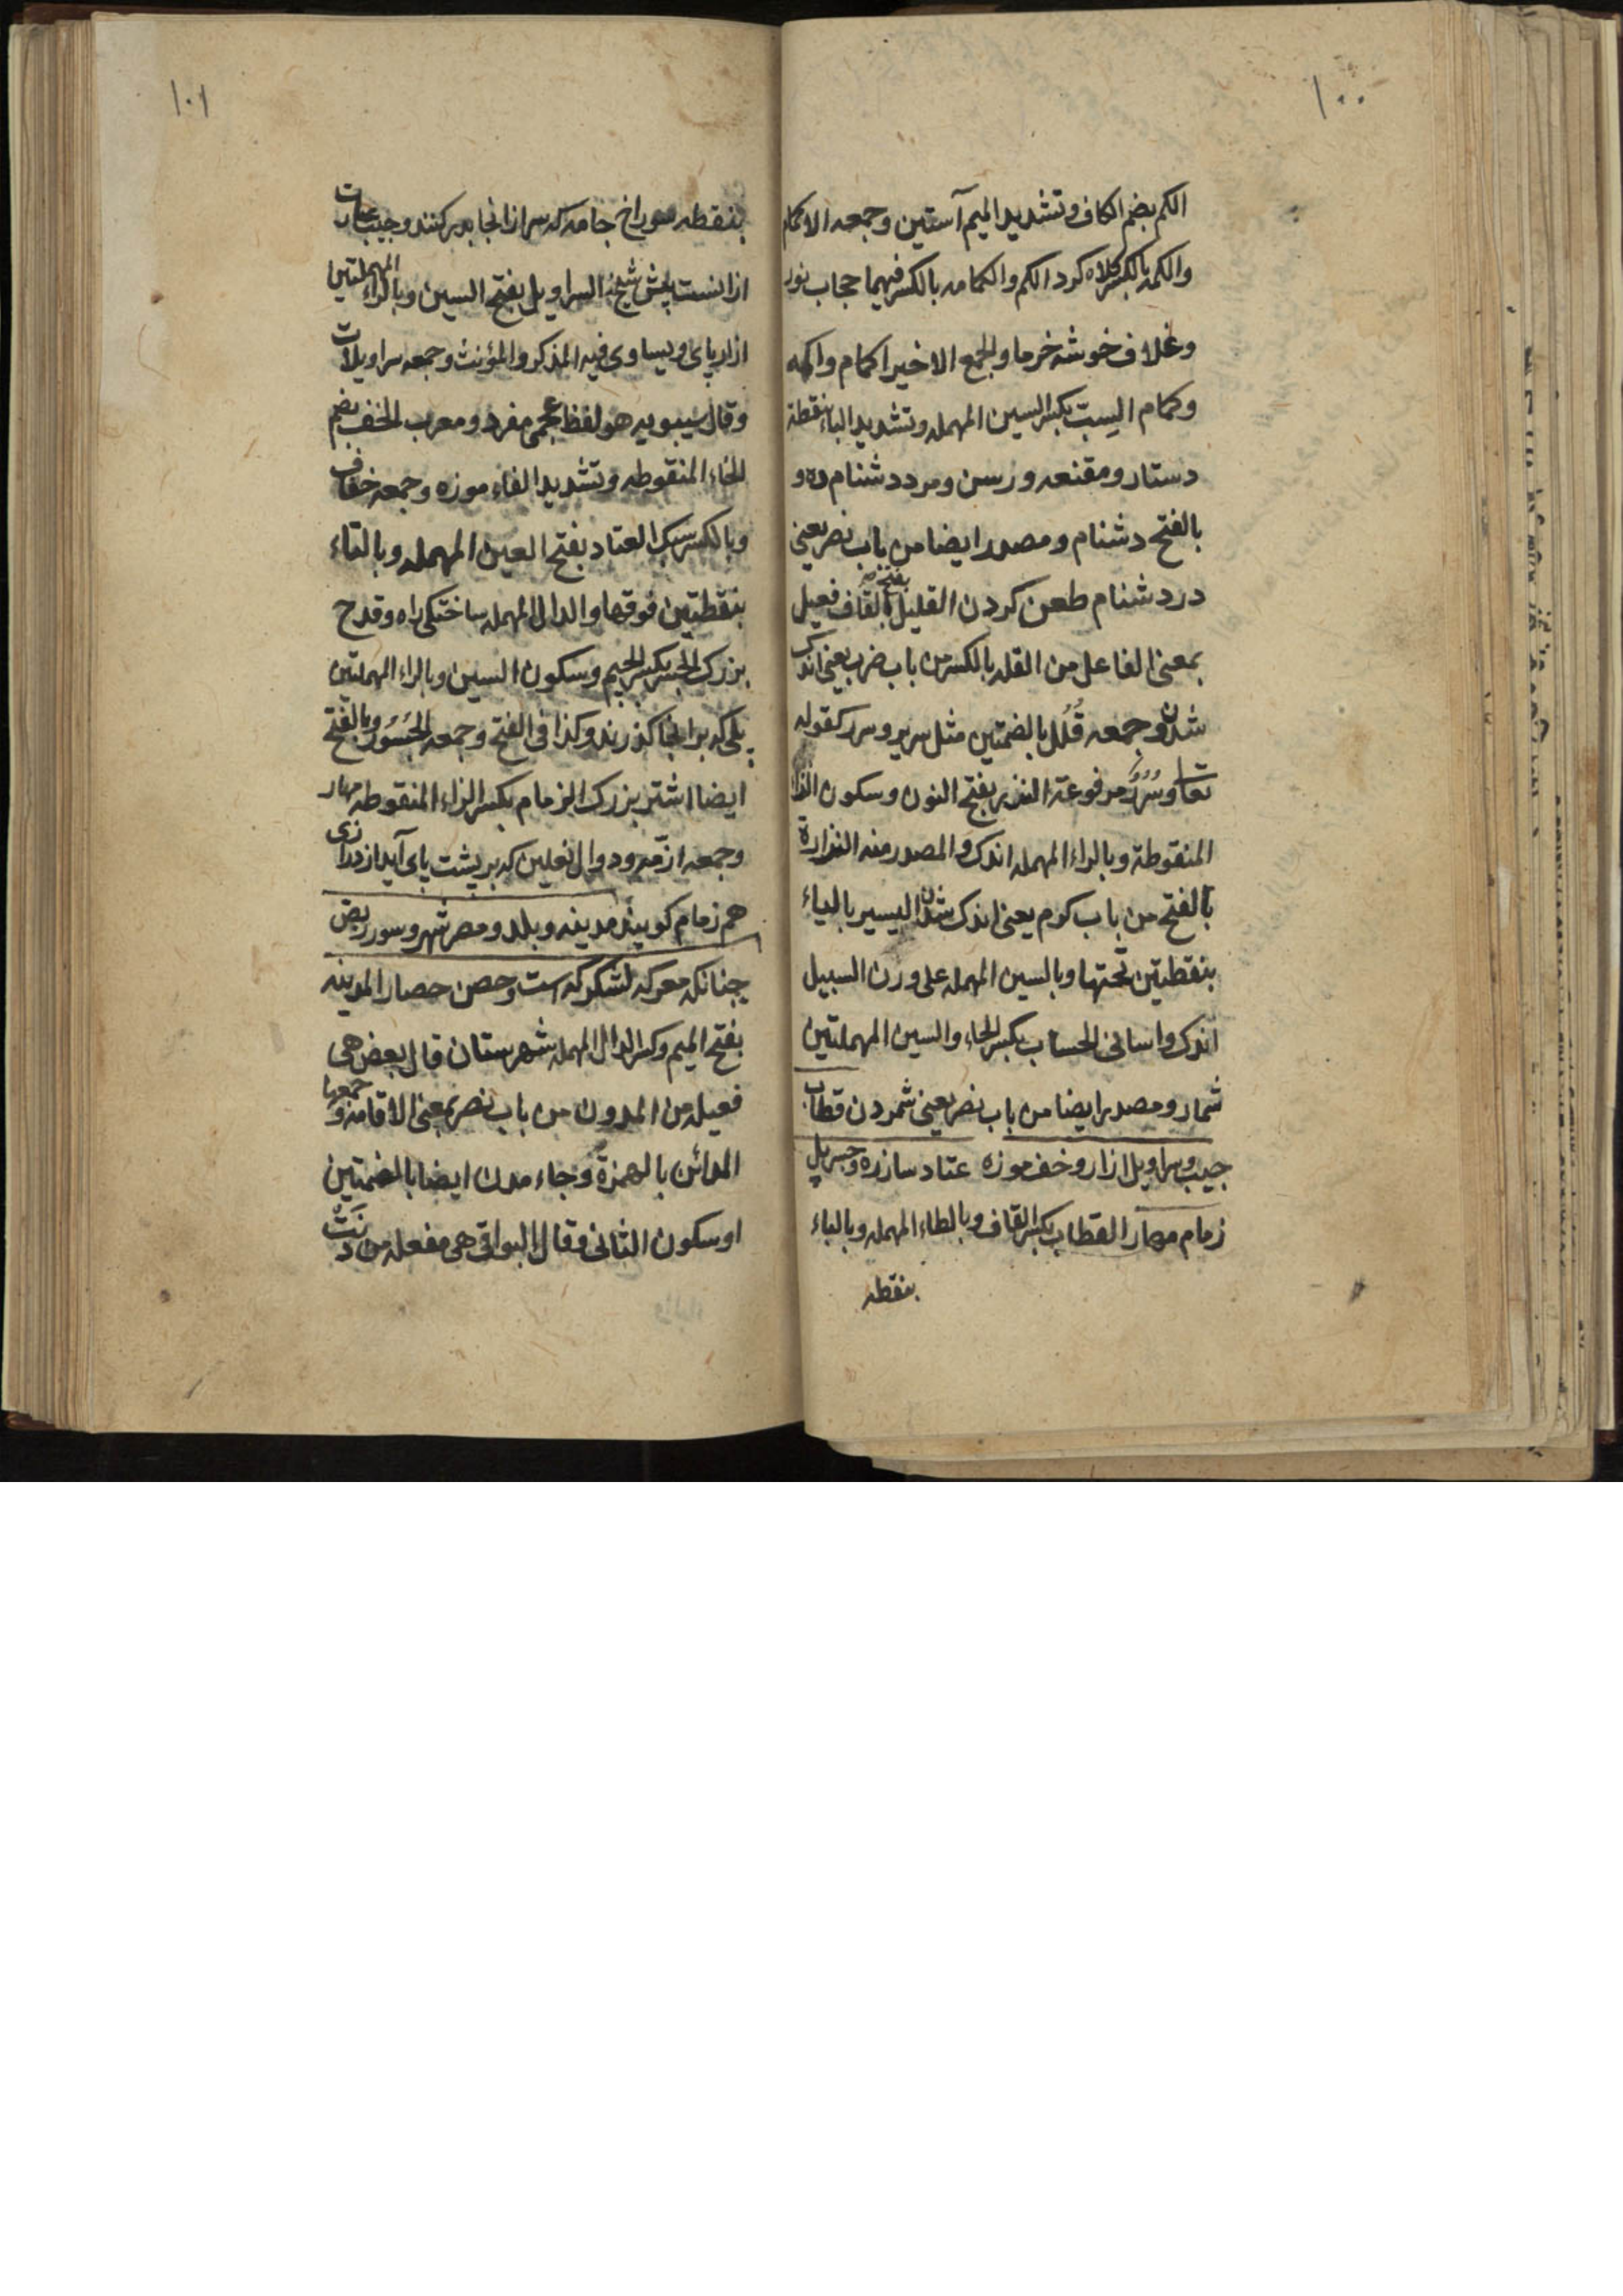 ١٠٠
الکم بضم الکاف وتشدید المیم آستین وجمعه الاکمام
والکمه بالکسر کلاه کرد الکم والکمامه بالکسر فیهما حجاب نور
وغلاف خوشه خرما والجمع الاخیر اکمام واکمه
وکمام السِبت بکسر السین المهمله وتشدید الباء بنقطة
دستار ومقنعه ورسن ومرد دشنام ده و
بالفتح دشنام ومصدر ایضا من باب نصر یعنی
در دشنام طعن کردن القلیل بفتح القاف فعیل
بمعنی الفاعل من القله بالکسر من باب ضرب یعنی اندک
شدن وجمعه قُلُل بالضمتین مثل سریر وسرر کقوله
تعا وسُرُرٌ مرفوعة النذیر بفتح النون وسکون الذال
المنقوطة وبالراء المهمله اندک والمصدر منه النذارة
بالفتح من باب کرم یعنی اندک شدن الیسیر بالیاء
بنقطتین تحتها وبالسین المهمله علی وزن السبیل
اندک واسانی الحساب بکسر الحاء والسین المهملتین
شمار ومصدر ایضا من باب نصر یعنی شمردن قطاب
جیب وسراویل ازار وخف موزه عتاد سازره وجسر پل
زمام مهار القطاب بکسر القاف وبالطاء المهمله وبالباء
بنقطه
١٠١
بنقطه سوراخ جامه که سر از انجا بدر کنند وجیب عبارت
از انست السراویل بفتح السین وبالراء المهملتین
ازار پای ویساوی فیه المذکر والمؤنث وجمعه سراویلات
وقال سیبویه هو لفظ عجمی مفرد ومعرب الخف بضم
الخاء المنقوطه وتشدید الفاء موزه وجمعه خفاف
وبالکسر سبک العتاد بفتح العین المهمله وبالتاء
بنقطتین فوقها والدال المهمله ساختکی راه وقدح
بزرک الجسر بکسر الجیم وسکون السین وبالراء المهملتین
پلی که بر انجا کذرند وکذا فی الفتح وجمعه الجُسُور وبالفتح
ایضا اشتر بزرک الزمام بکسر الزاء المنقوطه مهار
وجمعه ازمه ودوال نعلین که بر پشت پای آید از درازی
هم زمام کویند مدینه وبلد ومصر شهر وسور ربض
چنانکه معرکه لشکرکه است وحصن حصار المدینه
بفتح المیم وکسر الدال المهمله شهرستان قال بعض هی
فعیله من المدون من باب نصر بمعنی الاقامة وجمعها
المدائن بالهمزة وجاء مدن ایضا بالضمتین
او سکون الثانی وقال البواقی هی مفعله من دِنتُ